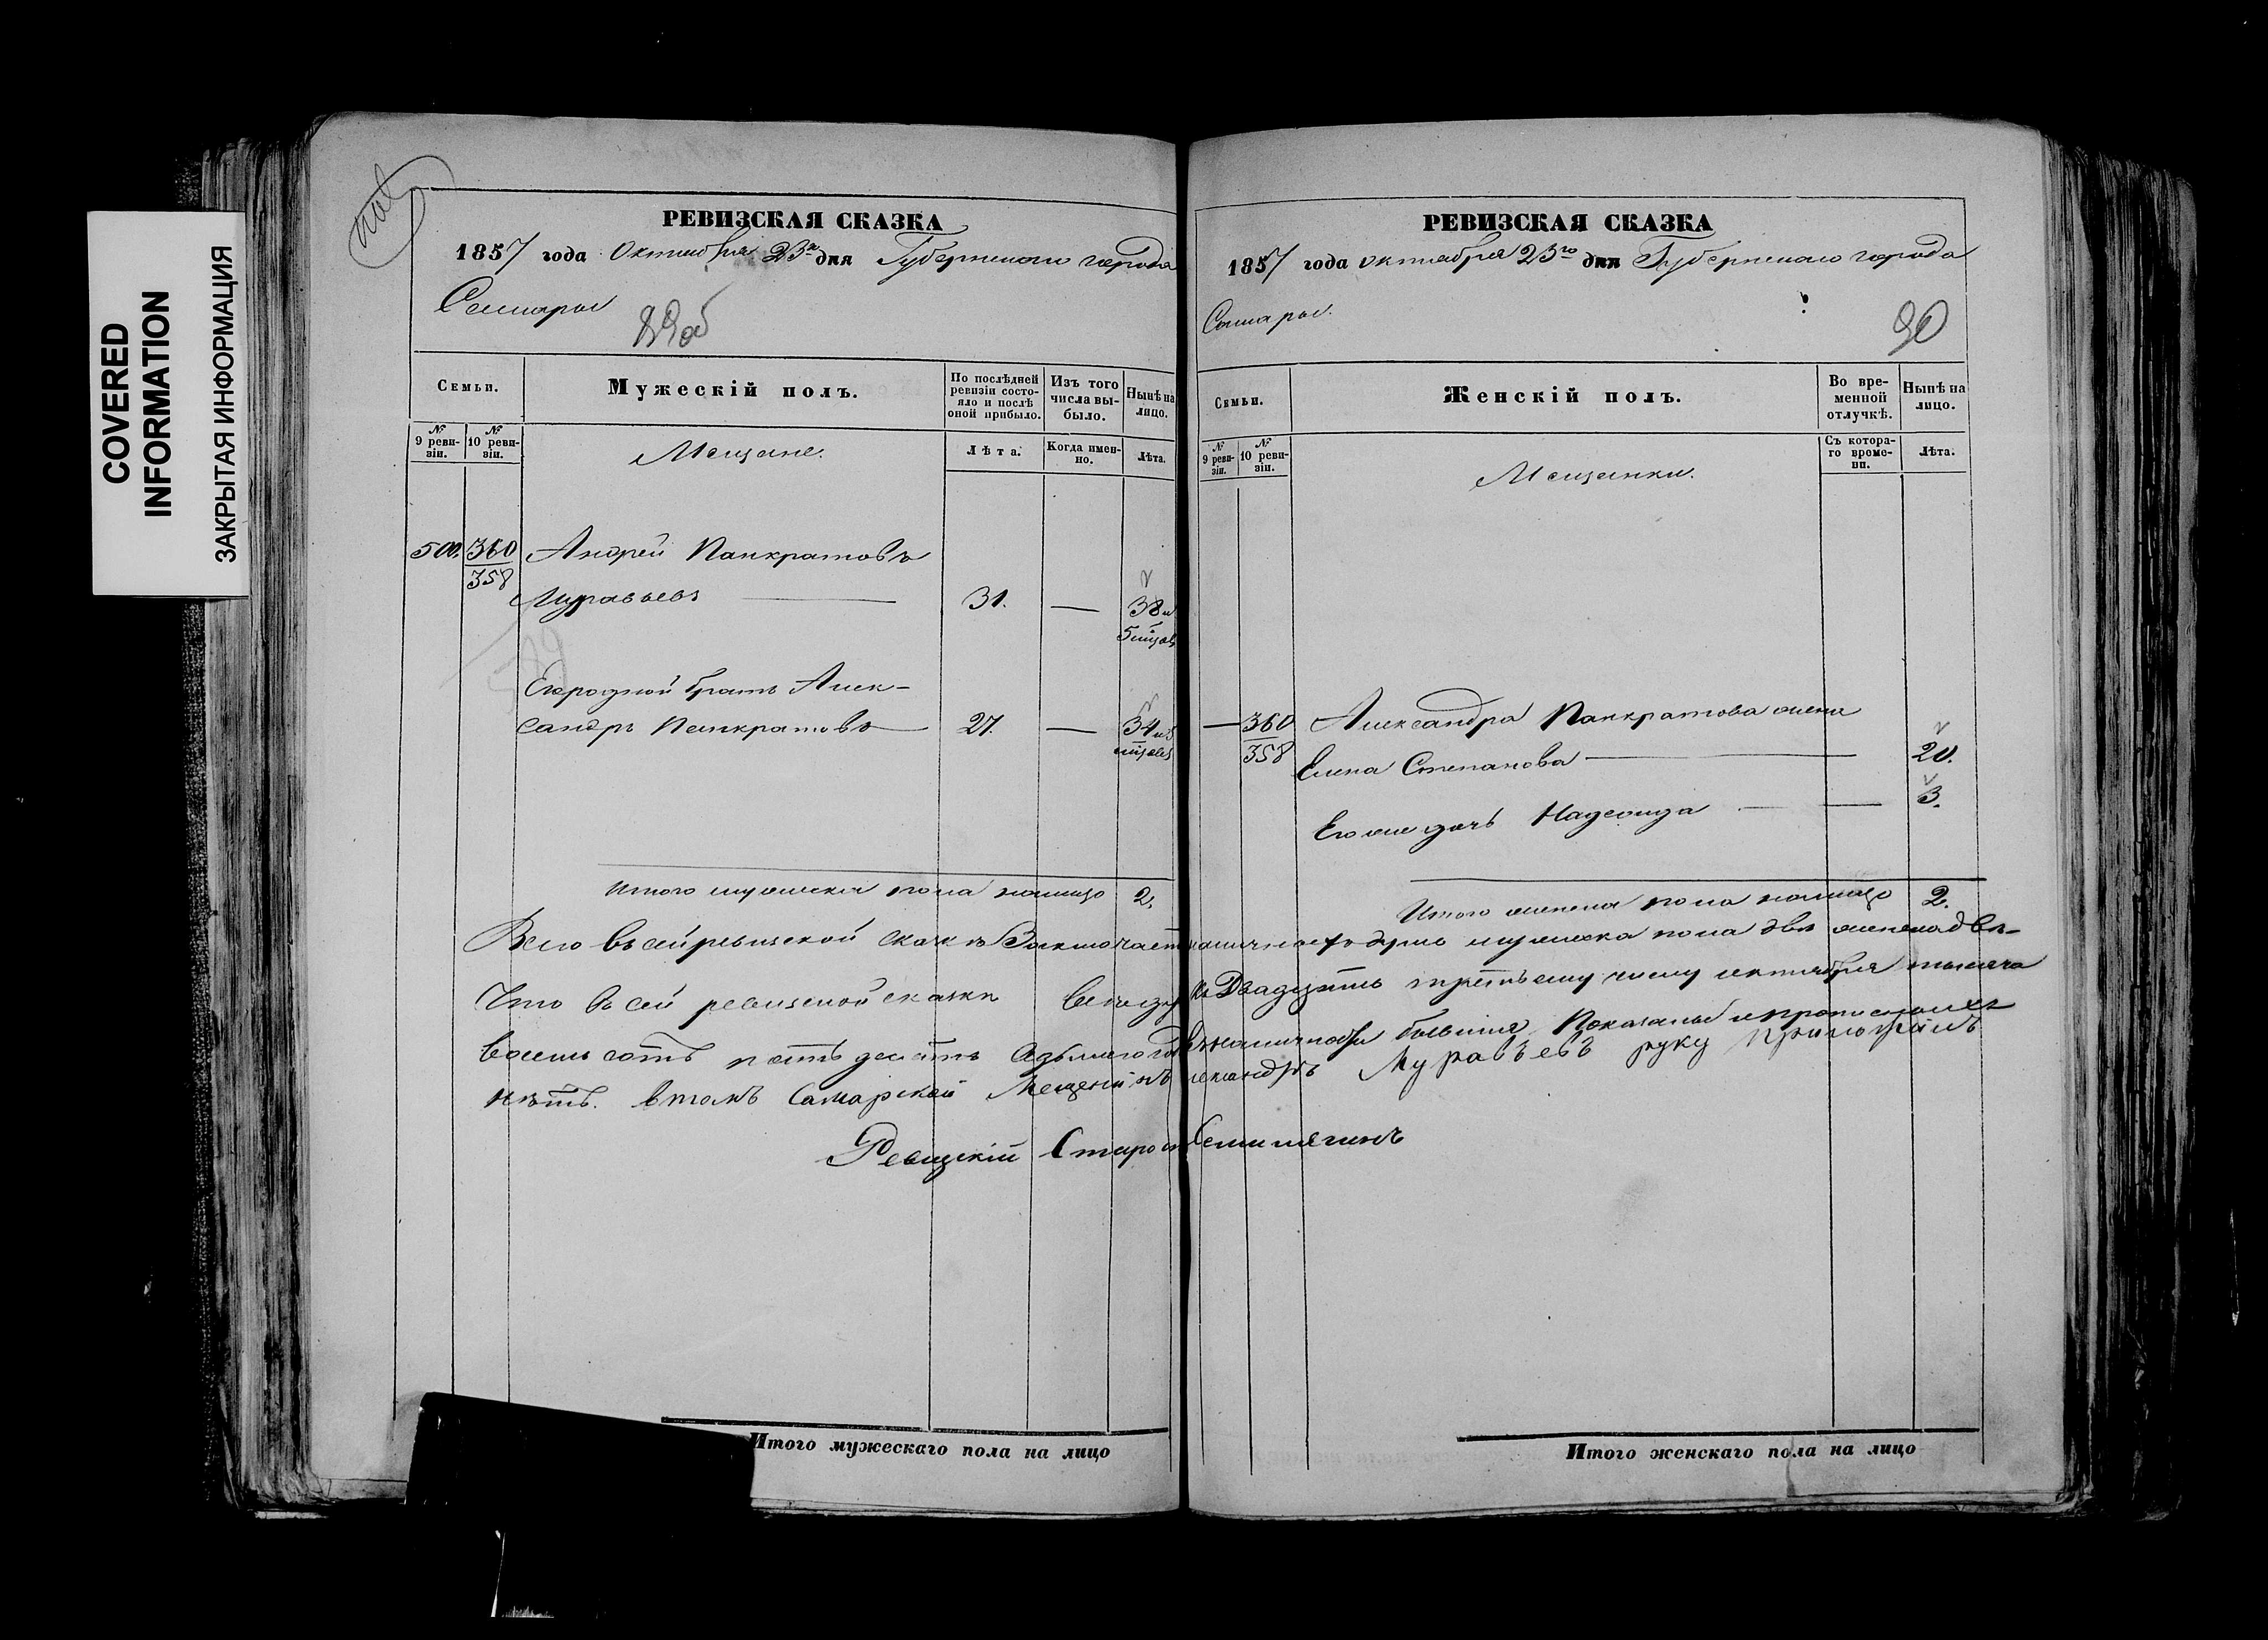 COVERED
INFORMATION
ЗАКРЫТАЯ ИНФОРМАЦИЯ
РЕВИЗСКАЯ СКАЗКА
1857 года Октября 23го дня Губернскаго города
Самары
89об
Семьи.
Мужескій полъ.
По послѣдней ревизіи состояло и послѣ оной прибыло.
Изъ того числа выбыло.
Нынѣ на лицо.
№ 9 ревизіи.
№ 10 ревизіи.
Мещане.
Лѣта.
Когда именно.
Лѣта.
500. 360 Андрей Панкратовъ
358
Муравьевъ 31. — 38 и
5 мцовъ
Егородной братъ Алек-
сандръ Панкратовъ 27. — 34 и 5
мцовъ
Итого мужеска пола налицо 2.
РЕВИЗСКАЯ СКАЗКА
1857 года октября 23го дня Губернскаго города
Самары.
90
Семьи.
Женскій полъ.
Во временной отлучкѣ.
Нынѣ на лицо.
№ 9 ревизіи.
№ 10 ревизіи.
Мещанки.
Съ котораго времени.
Лѣта.
— 360 Александра Панкратова жена
358
Елена Степанова 20.
Его же дочь Надежда 3.
Итого женска пола налицо 2.
Всего въ сей ревизской сказкѣ Заключает наличностъ душъ мужеска пола двѣ женска двѣ
Что въ сей ревизской сказкѣ всѣ къ Двадцать третьему числу октября тысяча
восемь сотъ пятьдесятъ седьмаго года въ наличности бывшія Показаны и прописныхъ
нѣтъ. втомъ Самарской Мещенинъ лександръ Муравьевъ руку приложилъ
Ревизскій Старост Семилягинъ
Итого мужескаго пола на лицо
Итого женскаго пола на лицо